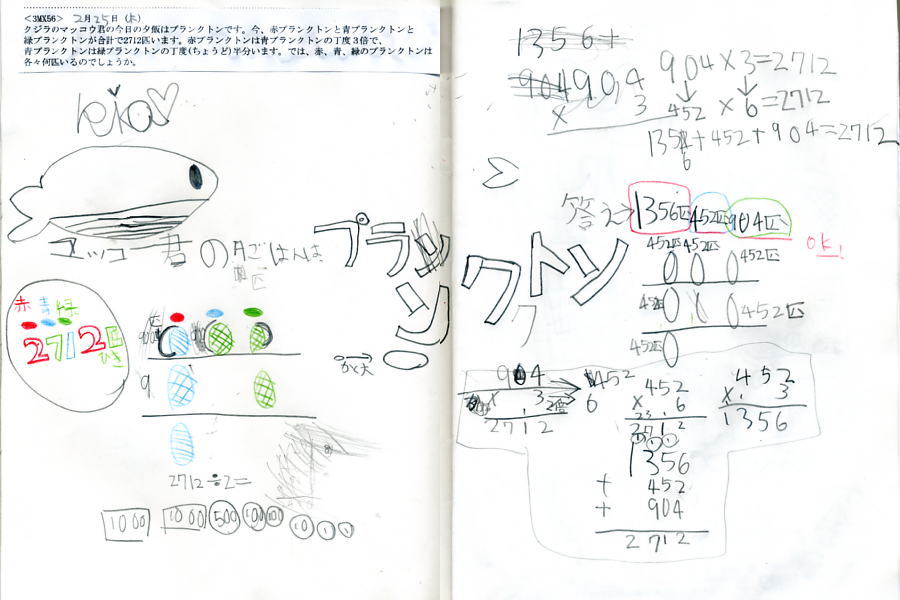 <3MX56> 2月25日(水)
クジラのマッコウ君の今日の夕飯はプランクトンです。今、赤プランクトンと青プランクトンと
緑プランクトンが合計で2712匹います。赤プランクトンは青プランクトンの丁度3倍で、
青プランクトンは緑プランクトンの丁度(ちょうど)半分います。では、赤、青、緑のプランクトンは
各々何匹いるのでしょうか。
君の夕ごはんは
プラン
ン
赤 青 緑
2712匹
ひき
9
かく大
2712÷2=
1000 1000 500 100 100 10 1 1
1356+
904 904
× 3
904×3=2712
452×6=2712
1356+452+904=2712
クトン
ク
答え→1356匹 452匹 904匹
OK!
452匹 452匹 452匹
452匹 452匹
452匹
904
× 3
2712
2倍
452
6
452
× 6
2712
452
× 3
1356
1356
+ 452
+ 904
2712